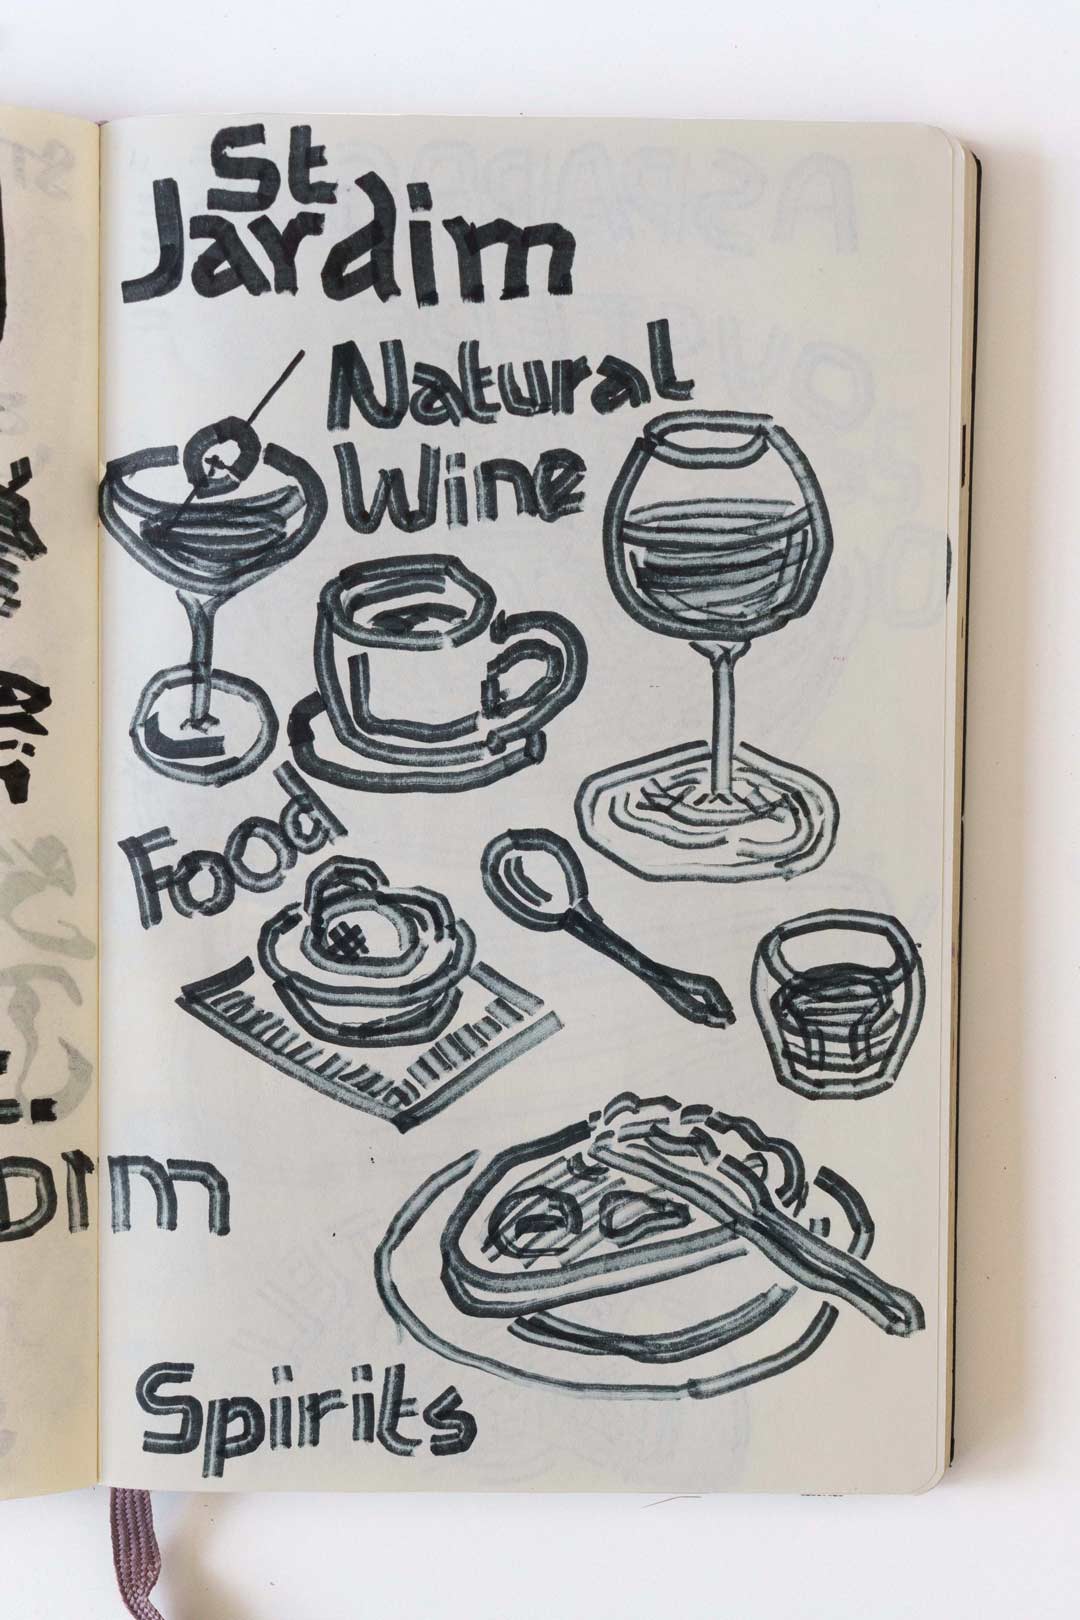 St
Jardim
Natural
Wine
Food
Spirits